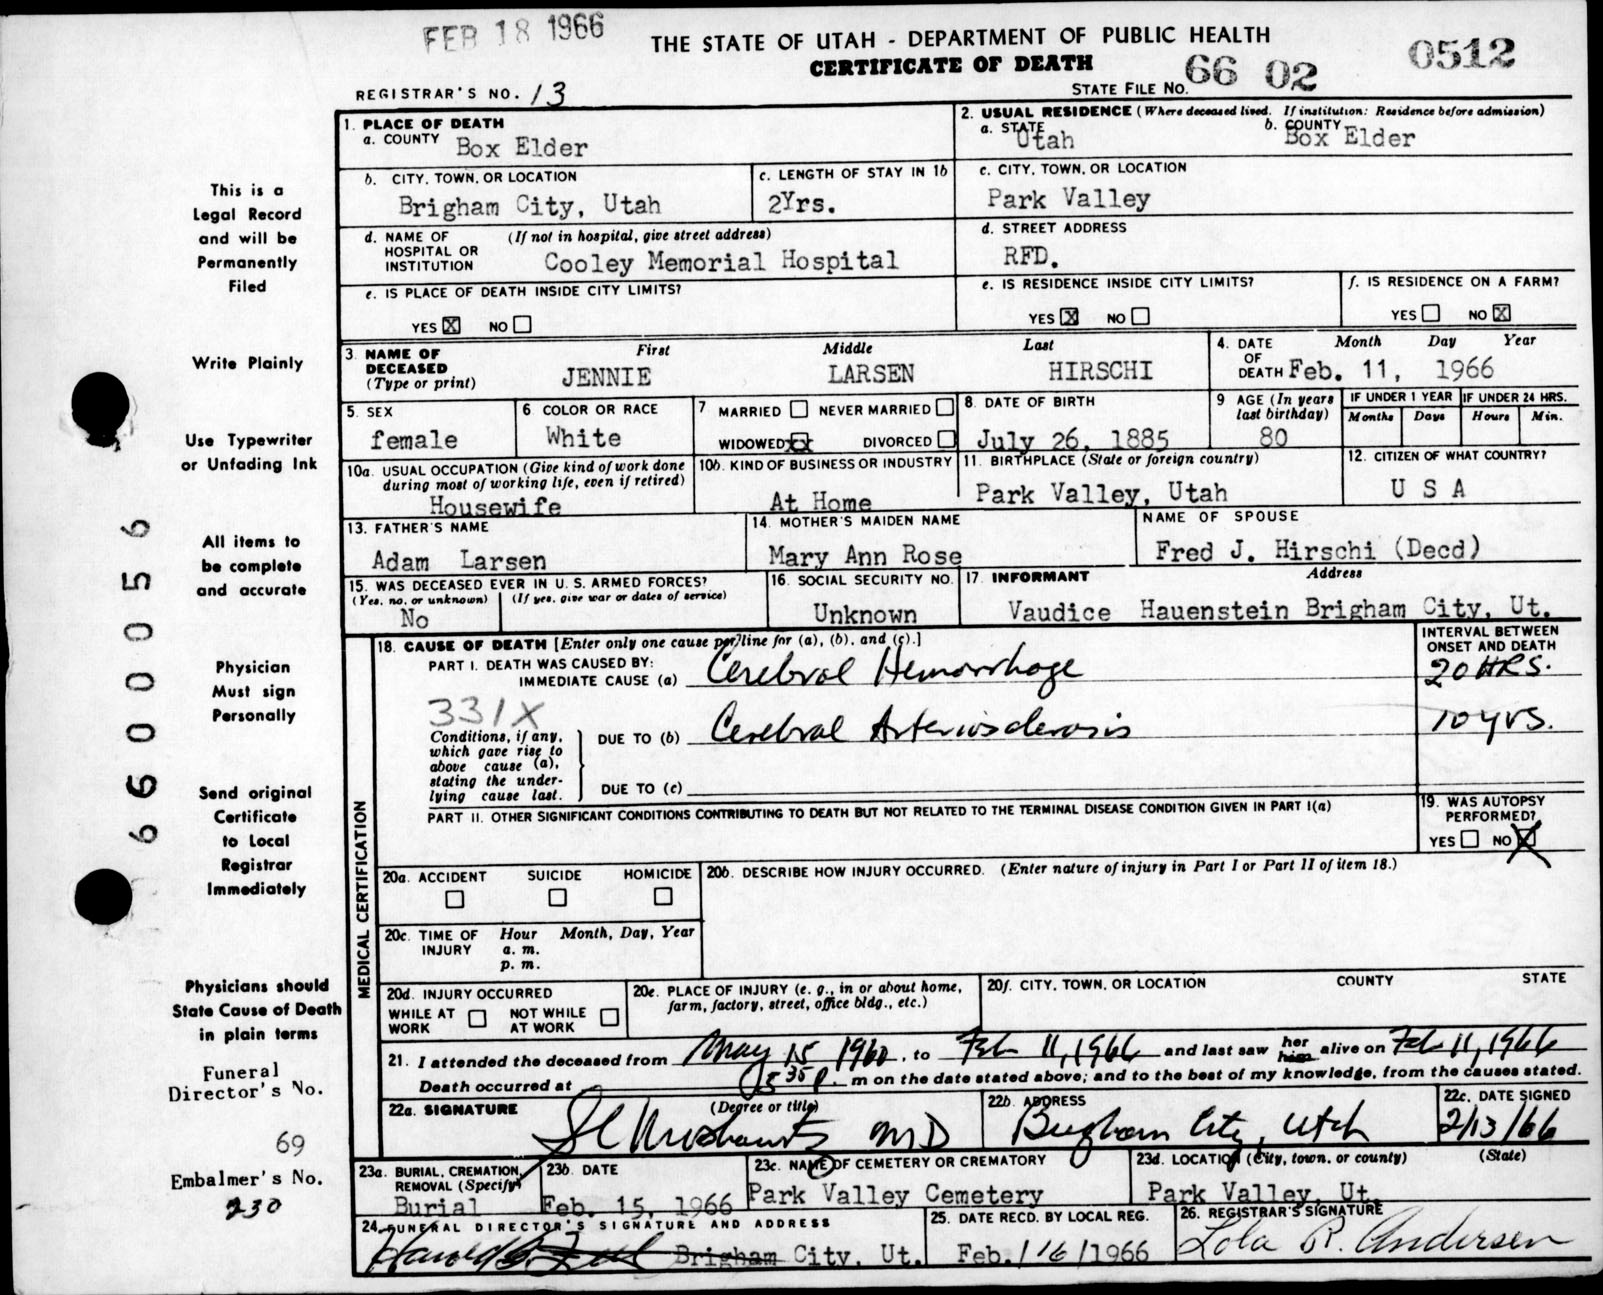 FEB 18 1966
THE STATE OF UTAH - DEPARTMENT OF PUBLIC HEALTH
CERTIFICATE OF DEATH
REGISTRAR'S NO. 13
STATE FILE NO. 66 02 0512
1. PLACE OF DEATH
a. COUNTY Box Elder
2. USUAL RESIDENCE (Where deceased lived. If institution: Residence before admission)
a. STATE Utah b. COUNTY Box Elder
b. CITY, TOWN, OR LOCATION Brigham City, Utah
c. LENGTH OF STAY IN 1b 2Yrs.
c. CITY, TOWN, OR LOCATION Park Valley
d. NAME OF HOSPITAL OR INSTITUTION (If not in hospital, give street address) Cooley Memorial Hospital
d. STREET ADDRESS RFD.
e. IS PLACE OF DEATH INSIDE CITY LIMITS?
YES X NO
e. IS RESIDENCE INSIDE CITY LIMITS?
YES X NO
f. IS RESIDENCE ON A FARM?
YES NO X
3. NAME OF DECEASED (Type or print)
First Middle Last
JENNIE LARSEN HIRSCHI
4. DATE OF DEATH Month Day Year
Feb. 11, 1966
5. SEX female
6 COLOR OR RACE White
7 MARRIED NEVER MARRIED
WIDOWED XX DIVORCED
8. DATE OF BIRTH July 26, 1885
9 AGE (In years last birthday) 80
IF UNDER 1 YEAR Months Days
IF UNDER 24 HRS. Hours Min.
10a. USUAL OCCUPATION (Give kind of work done during most of working life, even if retired) Housewife
10b. KIND OF BUSINESS OR INDUSTRY At Home
11. BIRTHPLACE (State or foreign country) Park Valley, Utah
12. CITIZEN OF WHAT COUNTRY? U S A
13. FATHER'S NAME Adam Larsen
14. MOTHER'S MAIDEN NAME Mary Ann Rose
NAME OF SPOUSE Fred J. Hirschi (Decd)
15. WAS DECEASED EVER IN U. S. ARMED FORCES?
(Yes, no, or unknown) (If yes, give war or dates of service)
No
16. SOCIAL SECURITY NO. Unknown
17. INFORMANT Address
Vaudice Hauenstein Brigham City, Ut.
18. CAUSE OF DEATH [Enter only one cause per line for (a), (b), and (c).]
INTERVAL BETWEEN ONSET AND DEATH
PART I. DEATH WAS CAUSED BY:
IMMEDIATE CAUSE (a) Cerebral Hemorrhage 20 HRS.
331X
Conditions, if any, which gave rise to above cause (a), stating the underlying cause last.
DUE TO (b) Cerebral Arteriosclerosis 10 yrs.
DUE TO (c)
PART II. OTHER SIGNIFICANT CONDITIONS CONTRIBUTING TO DEATH BUT NOT RELATED TO THE TERMINAL DISEASE CONDITION GIVEN IN PART I(a)
19. WAS AUTOPSY PERFORMED?
YES NO X
MEDICAL CERTIFICATION
20a. ACCIDENT SUICIDE HOMICIDE
20b. DESCRIBE HOW INJURY OCCURRED. (Enter nature of injury in Part I or Part II of item 18.)
20c. TIME OF INJURY Hour Month, Day, Year
a. m.
p. m.
20d. INJURY OCCURRED
WHILE AT WORK NOT WHILE AT WORK
20e. PLACE OF INJURY (e. g., in or about home, farm, factory, street, office bldg., etc.)
20f. CITY, TOWN, OR LOCATION COUNTY STATE
21. I attended the deceased from May 15 1960, to Feb 11, 1966 and last saw her him alive on Feb 11, 1966
Death occurred at 5 35 P. m on the date stated above; and to the best of my knowledge, from the causes stated.
22a. SIGNATURE (Degree or title) MD
22b. ADDRESS Brigham City, Utah
22c. DATE SIGNED 2/13/66
23a. BURIAL, CREMATION, REMOVAL (Specify) Burial
23b. DATE Feb. 15, 1966
23c. NAME OF CEMETERY OR CREMATORY Park Valley Cemetery
23d. LOCATION (City, town, or county) (State)
Park Valley, Ut.
24. FUNERAL DIRECTOR'S SIGNATURE AND ADDRESS
Harold B. Felt Brigham City, Ut.
25. DATE RECD. BY LOCAL REG. Feb. 16/1966
26. REGISTRAR'S SIGNATURE Lola R. Andersen
This is a
Legal Record
and will be
Permanently
Filed
Write Plainly
Use Typewriter
or Unfading Ink
All items to
be complete
and accurate
Physician
Must sign
Personally
Send original
Certificate
to Local
Registrar
Immediately
Physicians should
State Cause of Death
in plain terms
Funeral
Director's No.
69
Embalmer's No.
230
66000056